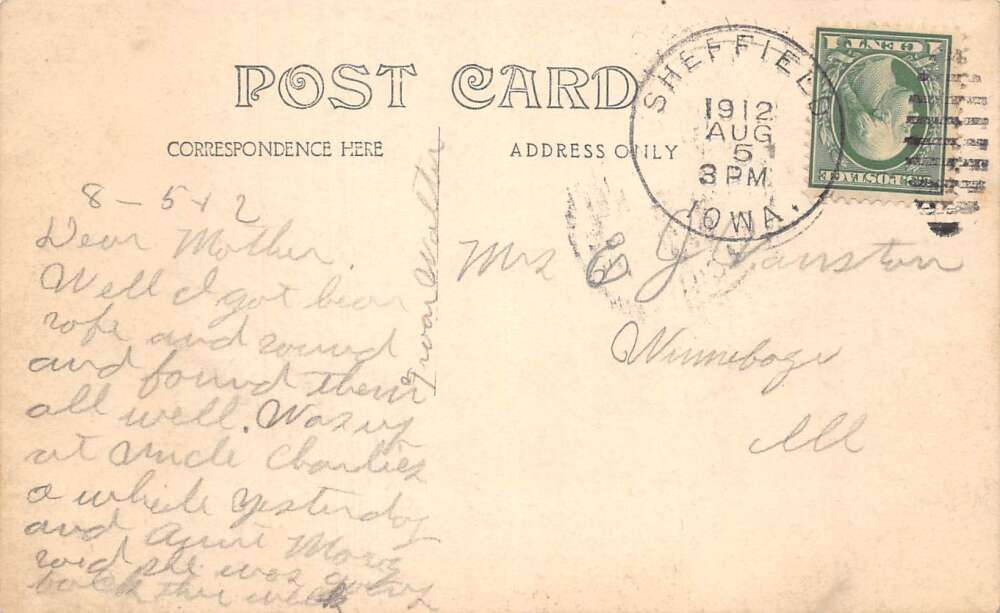 POST CARD
CORRESPONDENCE HERE
ADDRESS ONLY
SHEFFIELD
1912
AUG
5
3 PM
IOWA.
1 CENT 1
U.S. POSTAGE
8 - 5 12
Dear Mother.
Well I got bear
safe and sound
and found them
all well. Was up
at Uncle Charlies
a while yesterday
and Aunt Mary
said she was going
back this week
from Walter
Mrs J Vanston
Winnebago
Ill